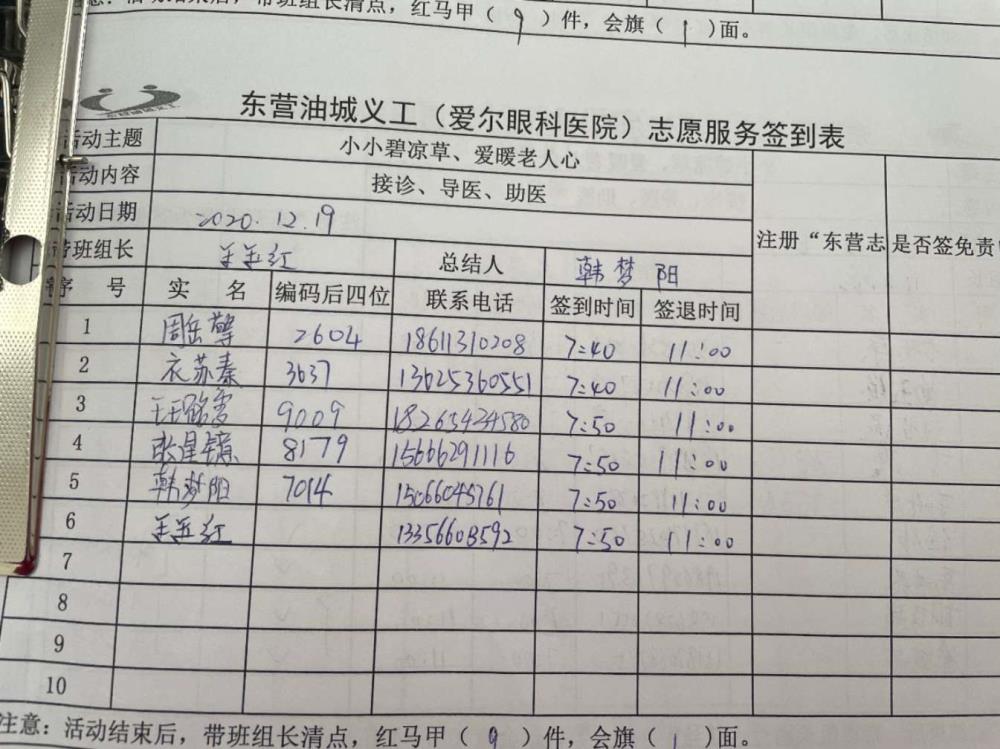 意：活动结束后，带班组长清点，红马甲（ 9 ）件，会旗（ 1 ）面。
东营油城义工（爱尔眼科医院）志愿服务签到表
活动主题 小小碧凉草、爱暖老人心
活动内容 接诊、导医、助医
活动日期 2020.12.19 注册“东营志 是否签免责
带班组长 王玉红 总结人 韩梦阳
序 号 实 名 编码后四位 联系电话 签到时间 签退时间
1 周岳擎 2604 18611310208 7:40 11:00
2 衣苏秦 3637 13625360551 7:40 11:00
3 9009 18265424580 7:50 11:00
4 8179 15666291116 7:50 11:00
5 韩梦阳 7014 15066045761 7:50 11:00
6 王玉红 13356603592 7:50 11:00
7
8
9
10
注意：活动结束后，带班组长清点，红马甲（ 9 ）件，会旗（ 1 ）面。